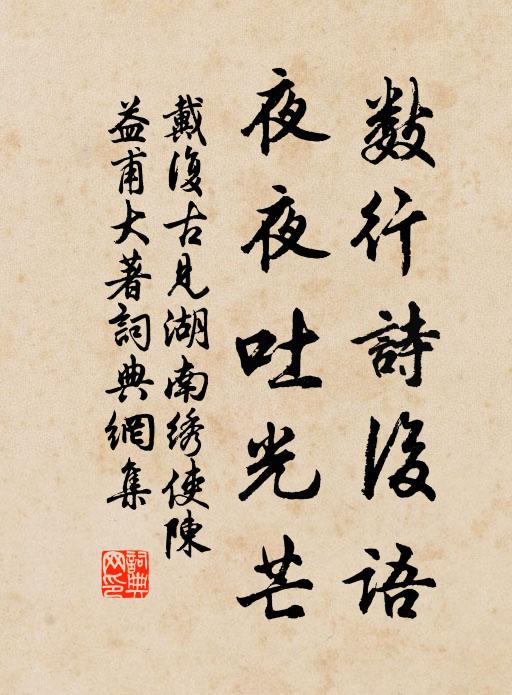 数行詩後語
夜夜吐光芒
戴復古見湖南绣使陳
益甫大著詞典網集
詞典
网印